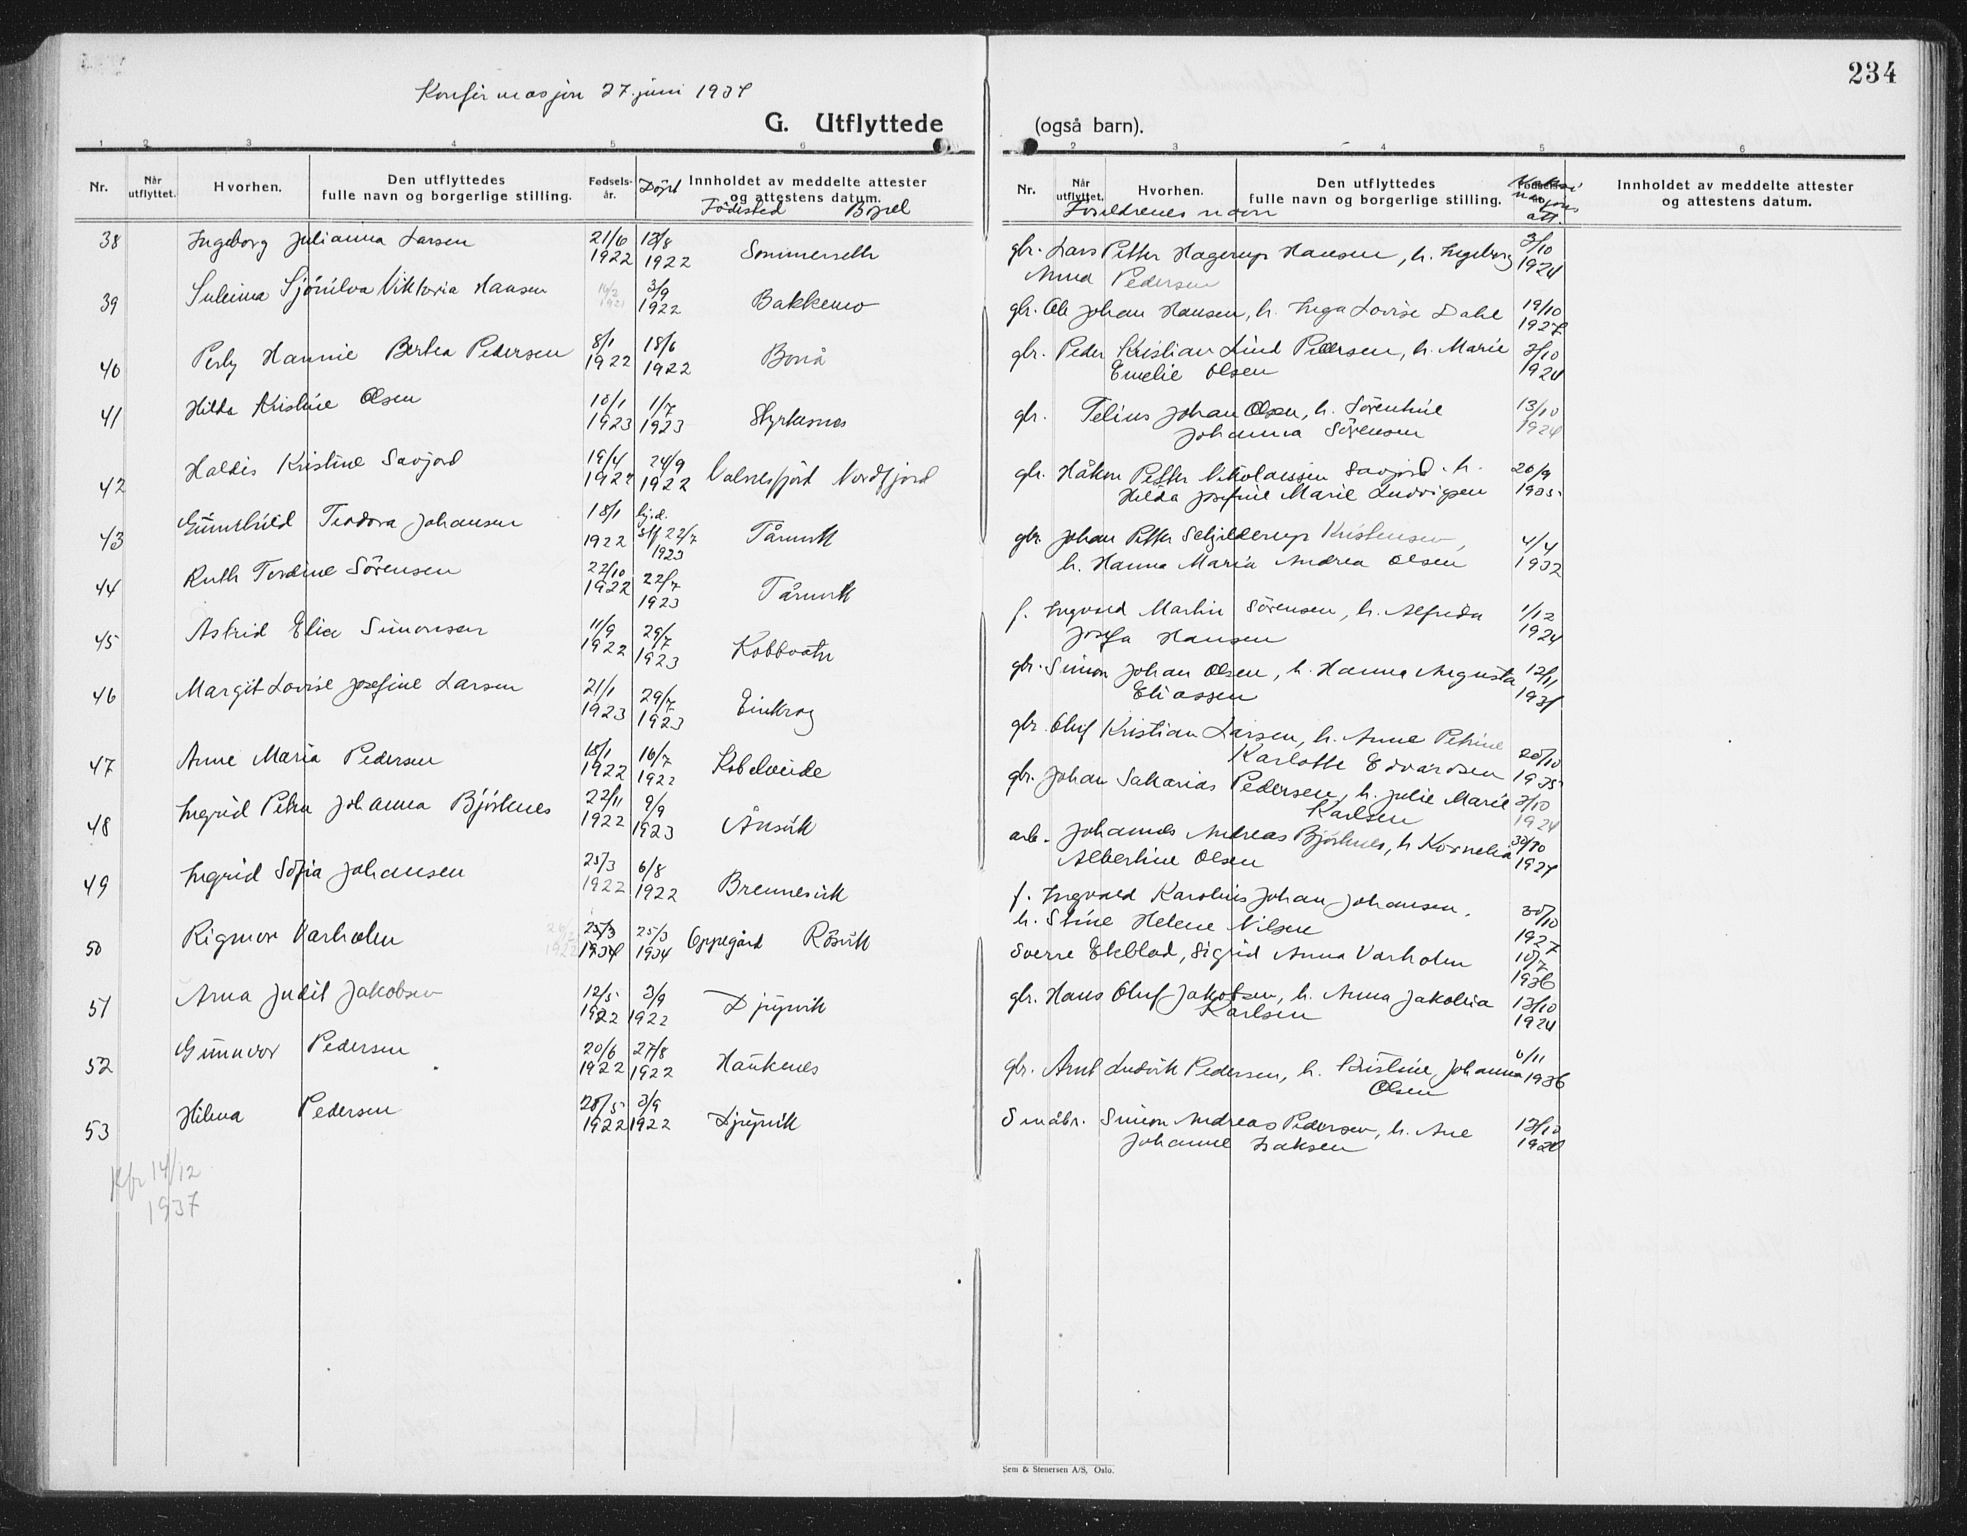 234
Konfirmasjon 27. juni 1937
G. Utflyttede (også barn).
1 2 3 4 5 6 2 3 4 5 6
Nr. Når utflyttet. Hvorhen. Den utflyttedes fulle navn og borgerlige stilling. Fødselsår. Döpt Innholdet av meddelte attester og attestens datum.
Födested Bopel
Nr. Når utflyttet. Hvorhen. Den utflyttedes fulle navn og borgerlige stilling. att. Innholdet av meddelte attester og attestens datum.
Foreldrenes navn
38 Ingeborg Julianna Larsen 21/6 1922 13/8 1922 Sommerseth
gbr. Lars Petter Hagerup Hansen, h. Ingeborg 3/10 1924
Anna Pedersen
39 Viktoria Hansen 3/9 1922 Bakkemo
gbr. Ole Johan Hansen, h. Inga Lovise Dahl 19/10 1927
40 Perly Hannie Bertea Pedersen 8/1 1922 18/6 1922 Bonå
gbr. Peder Kristian Lind Pedersen, h. Marie 3/10 1924
Emelie Olsen
41 Hilda Kristine Olsen 10/1 1923 1/7 1923 Styrkesnes
gbr. Telius Johan Olsen, h. Sörentine 13/10 1924
Johanna Sörensen
42 Haldis Kristine Savjord 19/4 1922 24/9 1922 Valnesfjord Nordfjord
gbr. Håkon Petter Nikolaissen Savjord. h. 20/9 1935
Hilda Josefine Marie Ludvigsen
43 Gunnhild Teodora Johansen 18/1 1922 hj.d. stf 22/7 1923 Tårnvik
gbr. Johan Petter Schjelderup Kristensen, 4/4 1932
h. Hanna Maria Andrea Olsen
44 Ruth Tordine Sörensen 22/10 1922 22/7 1923 Tårnvik
f. Ingvald Martin Sörensen, h. Alfreda 1/12 1924
Josefa Hansen
45 Astrid Elia Simonsen 11/9 1922 29/7 1923 Kobbvatn
gbr. Simon Johan Olsen, h. Hanna Augusta 12/11
Eliassen
46 Margit Lovise Josefine Larsen 21/1 1923 29/7 1923 Einkrog
gbr. Oluf Kristian Larsen, h. Anne Petrine
Karlotte Edvardsen 20/10 1935
47 Anne Maria Pedersen 15/1 1922 16/7 1922 Kobelveide
gbr. Johan Sakarias Pedersen, h. Julie Marie 3/10 1924
Karlsen
48 Ingrid Petra Johanna Björknes 22/11 1922 9/9 1923 Ånsvik
arb. Johannes Andreas Björknes, h. Kornelia 30/10 1927
Albertine Olsen
49 Ingrid Sofia Johansen 25/3 1922 6/8 1922 Brennesvik
f. Ingvald Karolius Johan Johansen. 30/10 1927
h. Stine Helene Nilsen
50 Rigmor Varholm 25/3 1934 25/3 1934 Oppegård Rösvik
Sverre Ekblad, Sigrid Anna Varholm 10/7 1936
51 Arna Judit Jakobsen 12/5 1922 3/9 1922 Djupvik
gbr. Hans Oluf Jakobsen, h. Anna Jakobia 13/10 1924
Karlsen
52 Gunnvor Pedersen 20/6 1922 27/8 1922 Haukenes
gbr. Arnt Ludvik Pedersen, h. Kristine Johanna 6/11 1936
Olsen
53 Hilma Pedersen 28/5 1922 3/9 1922 Djupvik
Småbr. Simon Andreas Pedersen, h. Ane 13/10
Johanne Isaksen
Kfr 14/12
1937
Sem & Stenersen A/S, Oslo.